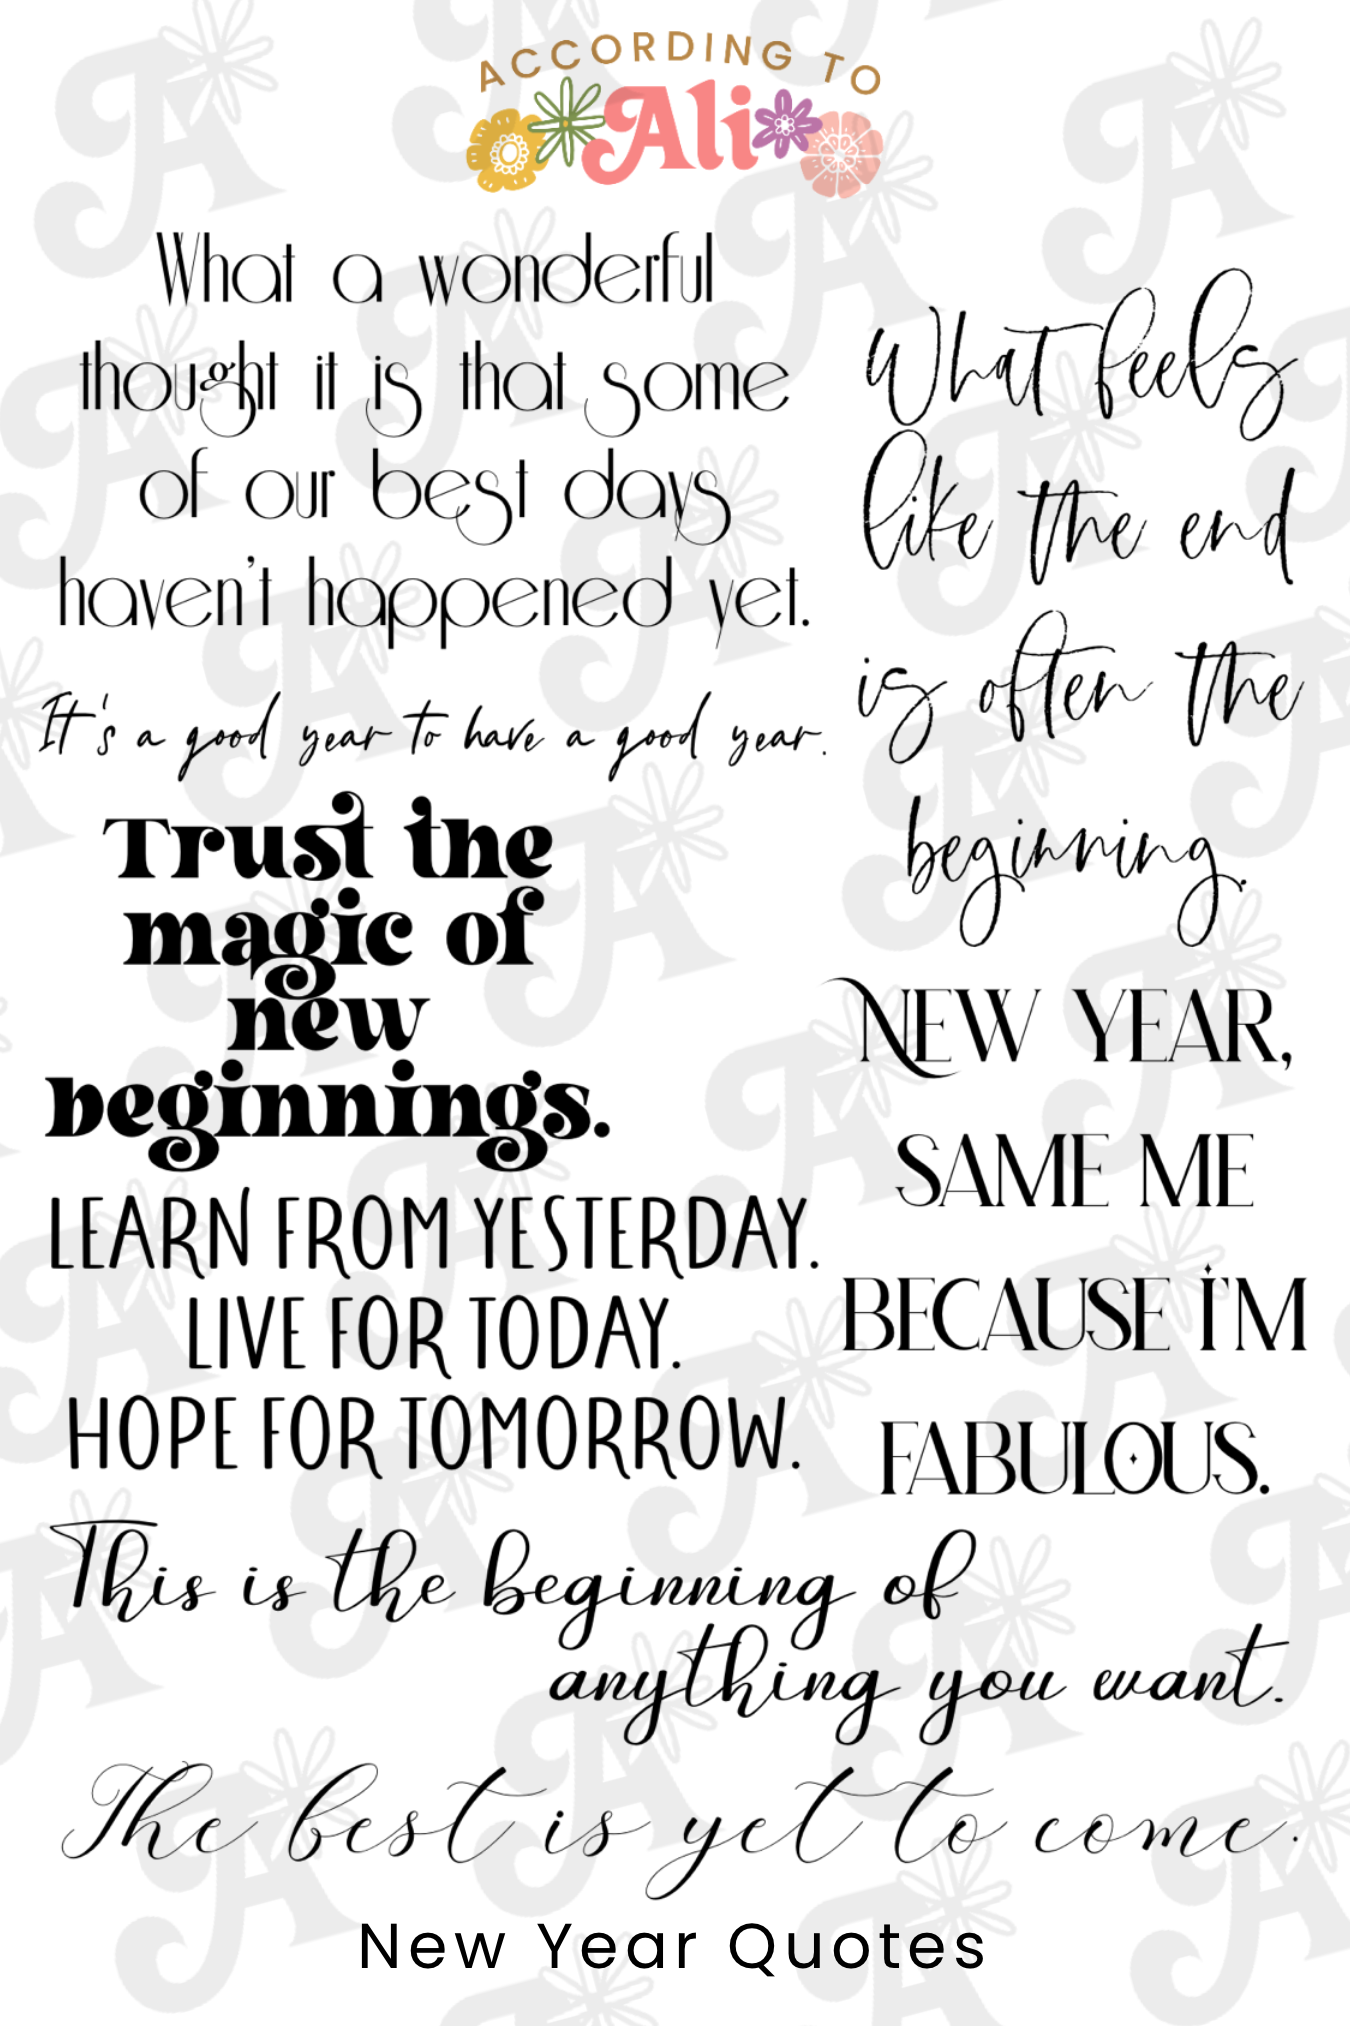 ACCORDING TO
Ali
What a wonderful
thought it is that some
of our best days
haven't happened yet.
It's a good year to have a good year.
Trust the
magic of
new
beginnings.
LEARN FROM YESTERDAY.
LIVE FOR TODAY.
HOPE FOR TOMORROW.
What feels
like the end
is often the
beginning.
NEW YEAR,
SAME ME
BECAUSE I'M
FABULOUS.
This is the beginning of
anything you want.
The best is yet to come.
New Year Quotes